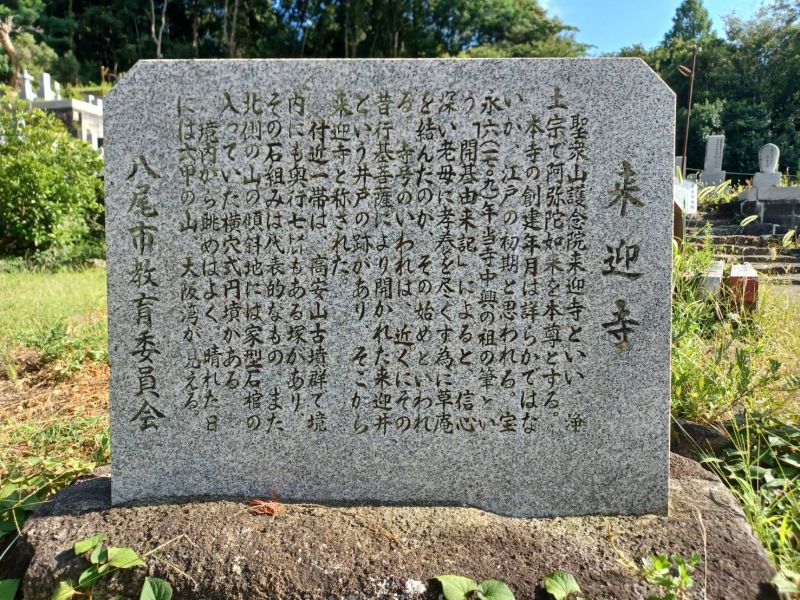 来迎寺
聖衆山護念院来迎寺といい、浄
土宗で阿弥陀如来を本尊とする。
本寺の創建年月は詳らかではな
いが、江戸の初期と思われる。宝
永六(一七〇九)年当寺中興の祖の筆とい
う「開基由来記」によると、信心
深い老母に孝養を尽くす為に草庵
を結んだのが、その始めといわれ
る。寺号のいわれは、近くにその
昔行基菩薩により開かれた来迎井
という井戸の跡があり、そこから
来迎寺と称された。
付近一帯は、高安山古墳群で境
内にも奥行七㍍もある塚があり、
その石組みは代表的なもの、また
北側の山の傾斜地には家型石棺の
入っていた横穴式円墳がある。
境内から眺めはよく、晴れた日
には六甲の山、大阪湾が見える。
八尾市教育委員会